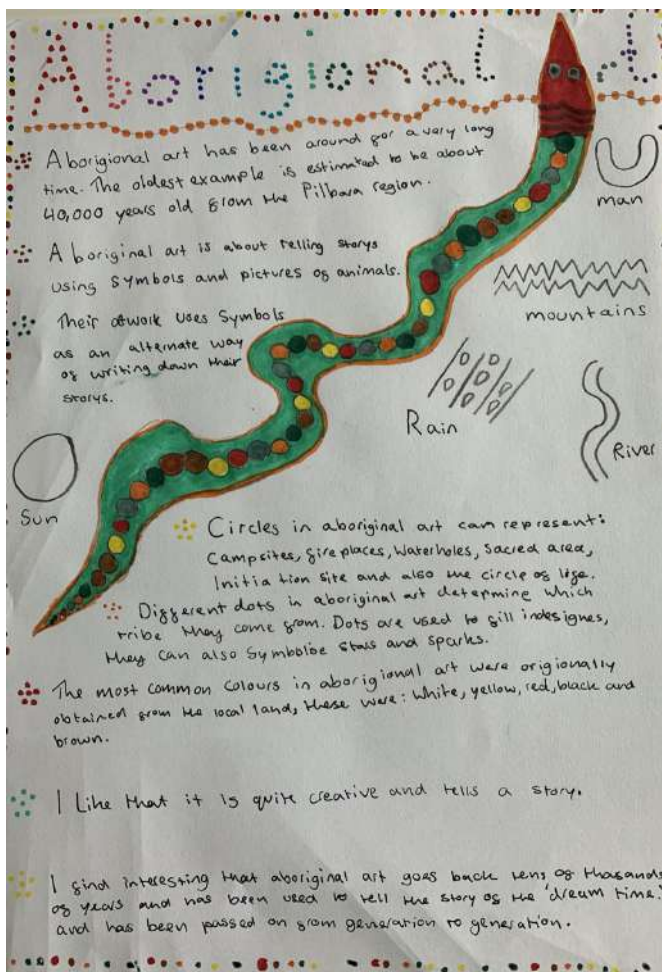 Aborigional art
Aborigional art has been around for a very long
time. The oldest example is estimated to be about
40,000 years old from the Pilbara region.
man
Aboriginal art is about telling storys
using symbols and pictures of animals.
mountains
Their atwork uses Symbols
as an alternate way
of writing down their
storys.
Rain
River
Sun
Circles in aboriginal art can represent:
Campsites, fireplaces, Waterholes, Sacred area,
Initiation site and also the circle of life.
Different dots in aboriginal art determine which
tribe they come from. Dots are used to fill indesignes,
they can also Symbolise stars and sparks.
The most common Colours in aboriginal art were origionally
obtained from the local land, these were: White, yellow, red, black and
brown.
I Like that it is quite creative and tells a story.
I find interesting that aboriginal art goes back tens of thasands
of years and has been used to tell the story of the 'dream time'.
and has been passed on from generation to generation.